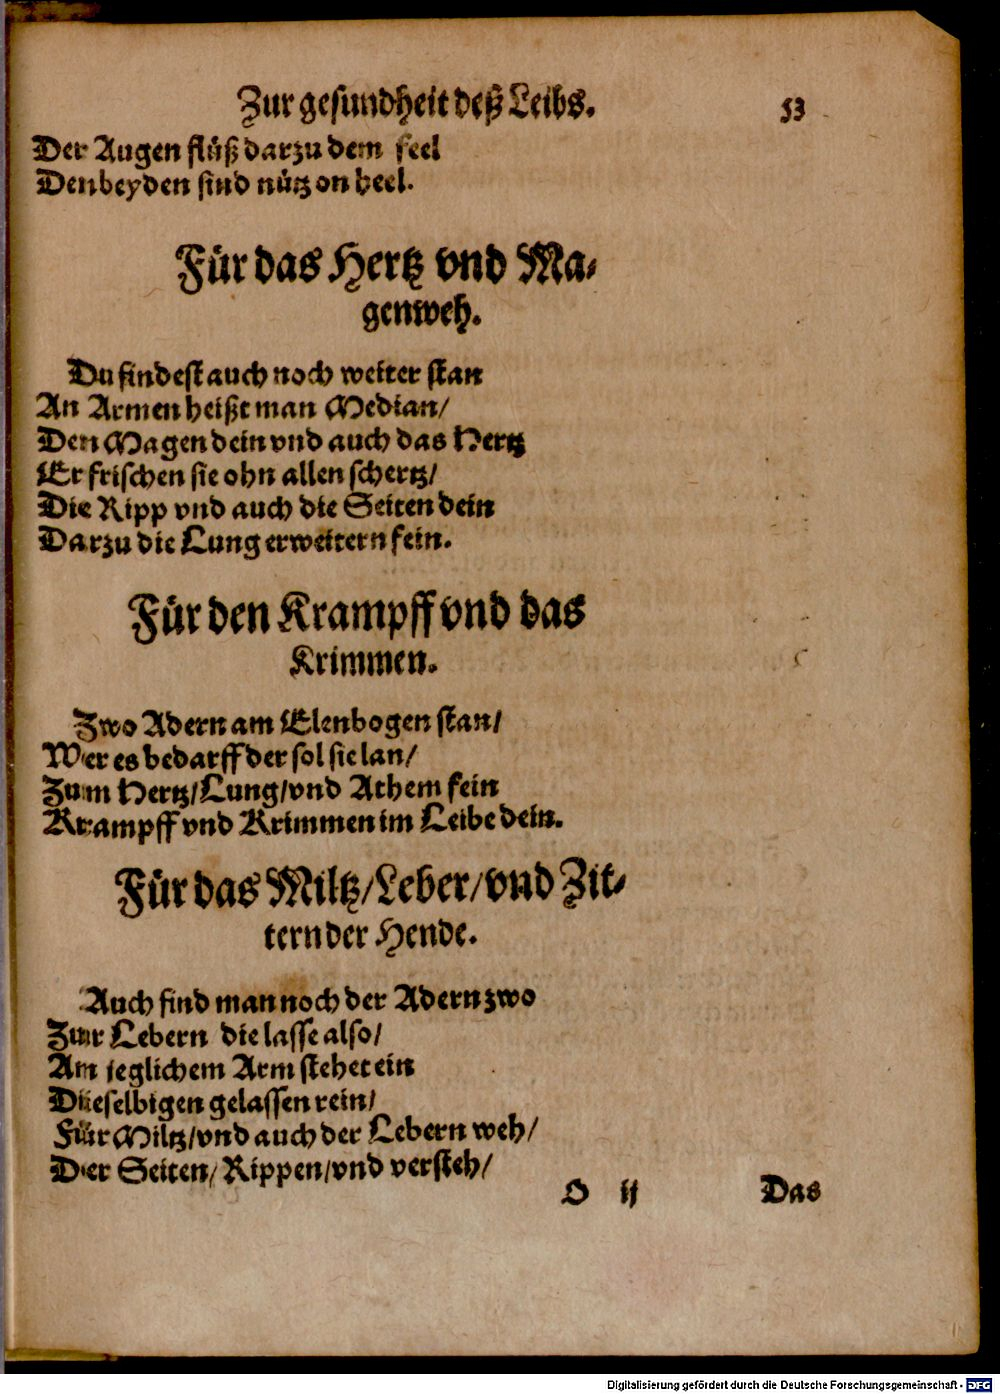 Zur gesundheit deß Leibs. 53
Der Augen flüß darzu dem feel
Den beyden sind nütz on heel.
Für das Hertz vnd Ma-
genweh.
Du findest auch noch weiter stan
An Armen heißt man Median/
Den Magen dein vnd auch das Hertz
Erfrischen sie ohn allen schertz/
Die Ripp vnd auch die Seiten dein
Darzu die Lung erweitern fein.
Für den Krampff vnd das
Krimmen.
Zwo Adern am Elenbogen stan/
Wer es bedarff der sol sie lan/
Zum Hertz/Lung/vnd Athem fein
Krampff vnd Krimmen im Leibe dein.
Für das Miltz/Leber/vnd Zit-
tern der Hende.
Auch find man noch der Adern zwo
Zur Lebern die lasse also/
Am jeglichem Arm stehet ein
Dieselbigen gelassen rein/
Für Miltz/vnd auch der Lebern weh/
Der Seiten/Rippen/vnd versteh/
O ij Das
Digitalisierung gefördert durch die Deutsche Forschungsgemeinschaft - DFG